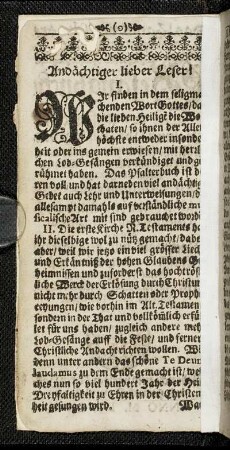 (o)
Andächtiger lieber Leser!
I.
WIr finden in dem seligma
chenden Wort Gottes/da
die lieben Heilige die Wo
thaten/ so ihnen der Aller
höchste entweder insonde
heit oder ins gemein erwiesen/ mit herrli
chen Lob-Gesängen verkündiget und ge
rühmet haben. Das Psalterbuch ist de
ren voll und hat darneben viel andächtig
Gebet auch Lehr und Unterweisungen/ d
allesampt damahls auf verständliche mu
sicalische Art mit sind gebrauchet word
II. Die erste Kirche N. Testaments ha
ihr dieselbige wol zu nütz gemacht/ dabe
aber/ weil wir jetzo ein viel grösser Liech
und Erkäntniß der hohen Glaubens Ge
heimnissen und zuforderst das hochtröstl
che Werck der Erlösung durch Christum
nicht mehr durch Schatten oder Proph
ceyungen/ wie vorhin im Alt. Testament
sondern in der That und vollkömlich erfül
let für uns haben/ zugleich andere meh
Lob-Gesänge auff die Feste/ und ferner
Christliche Andacht richten wollen. Wi
denn unter andern das schöne Te Deum
laudamus zu dem Ende gemacht ist/ we
ches nun so viel hundert Jahr der Hei
Dreyfaltigkeit zu Ehren in der Christen
heit gesungen wird.
Wa